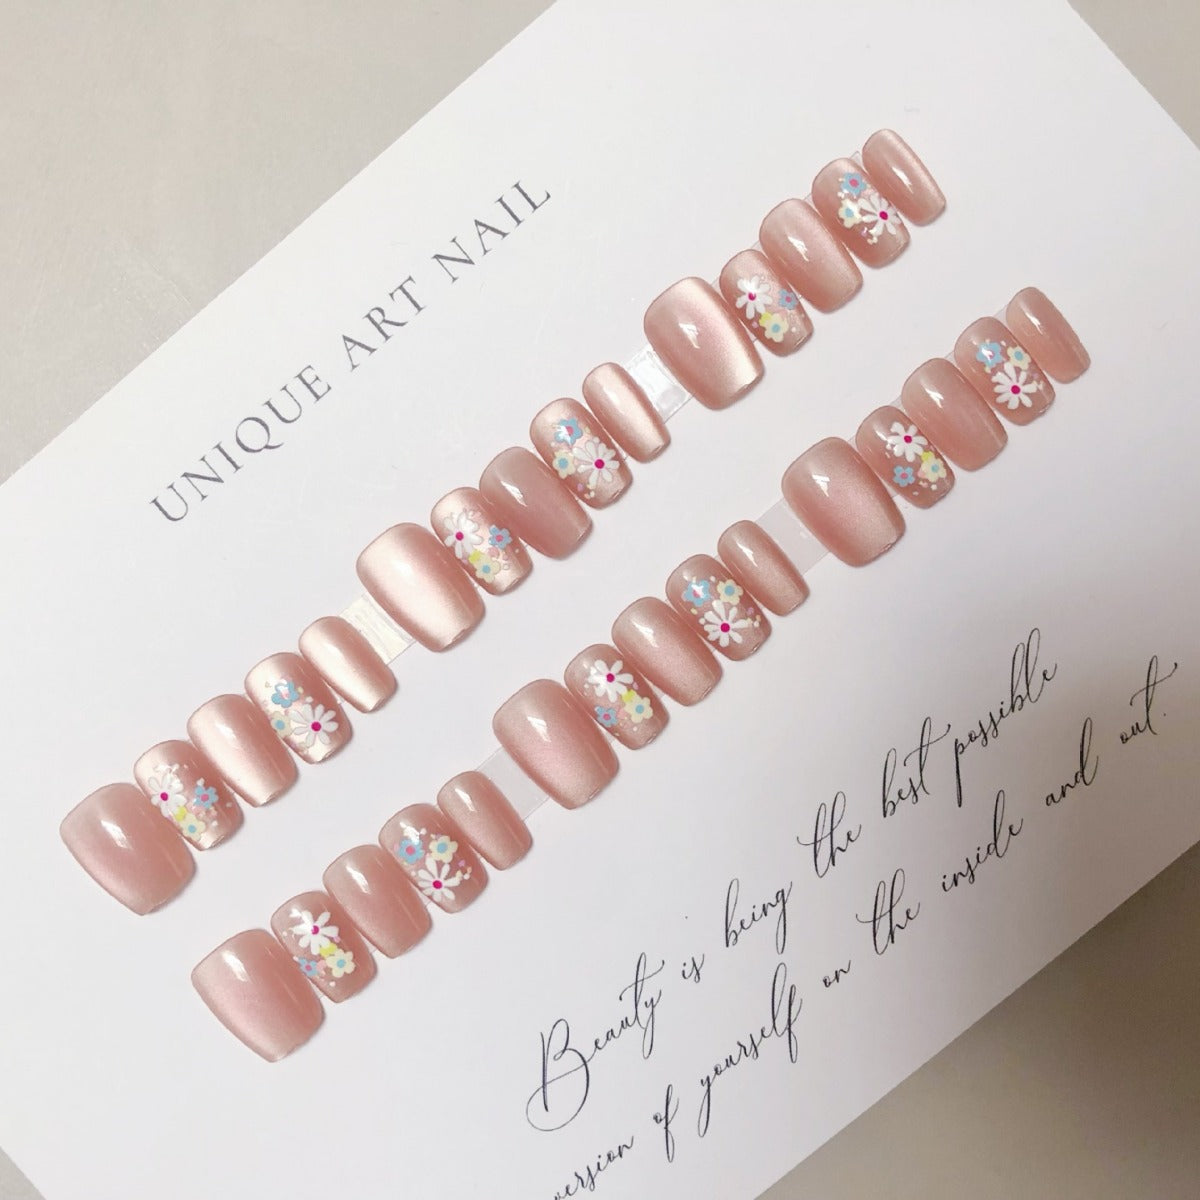 UNIQUE ART NAIL
Beauty is being the best possible
version of yourself on the inside and out.